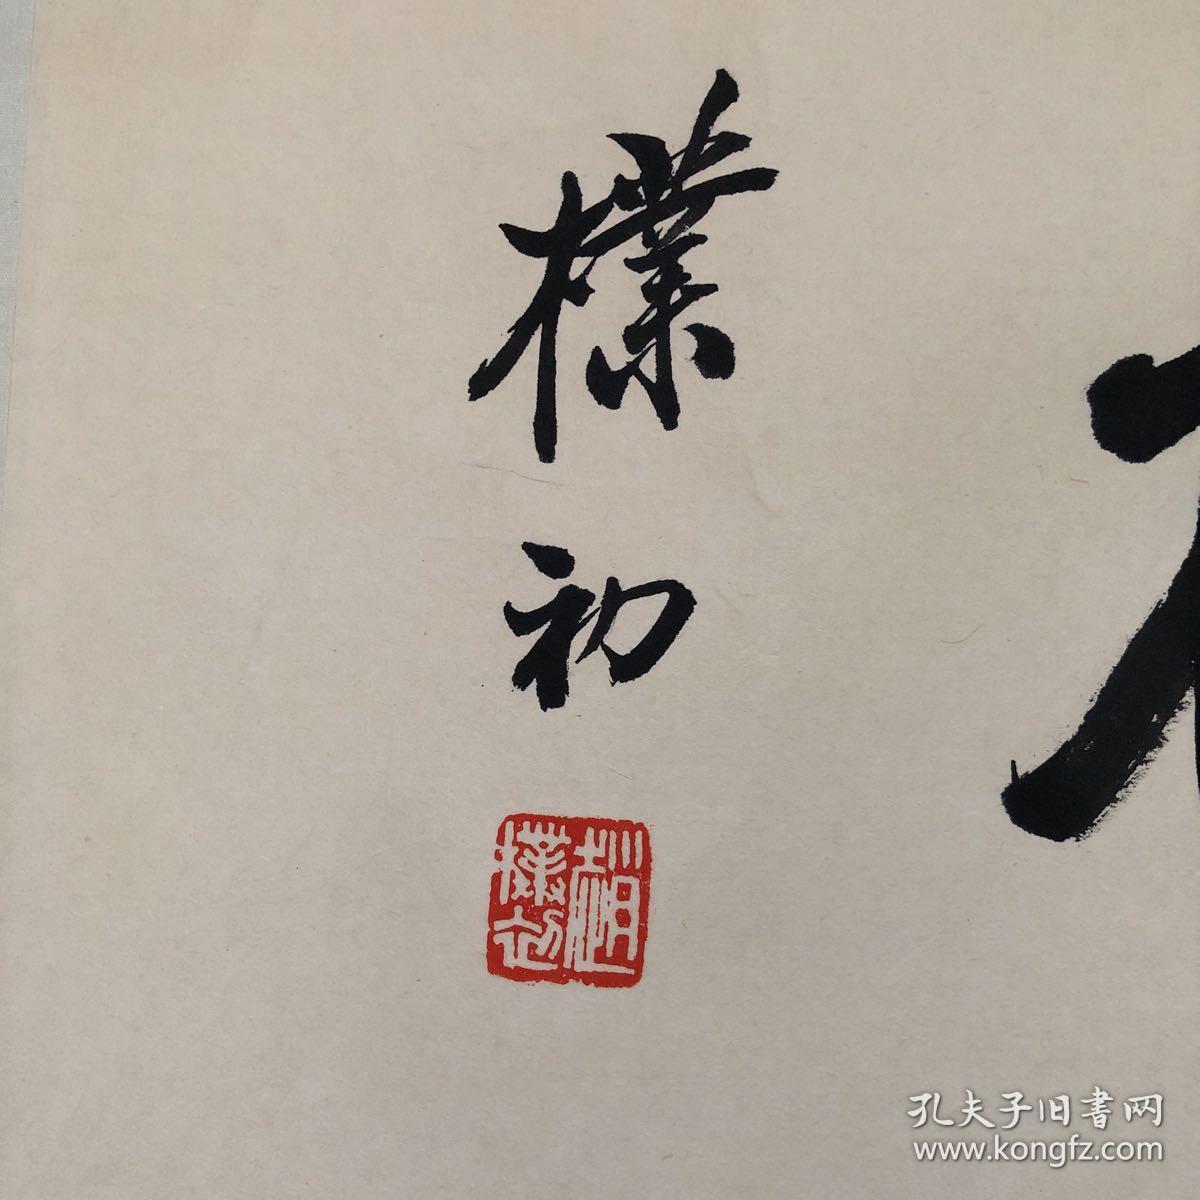 樸初
趙樸初
孔夫子旧書网
www.kongfz.com